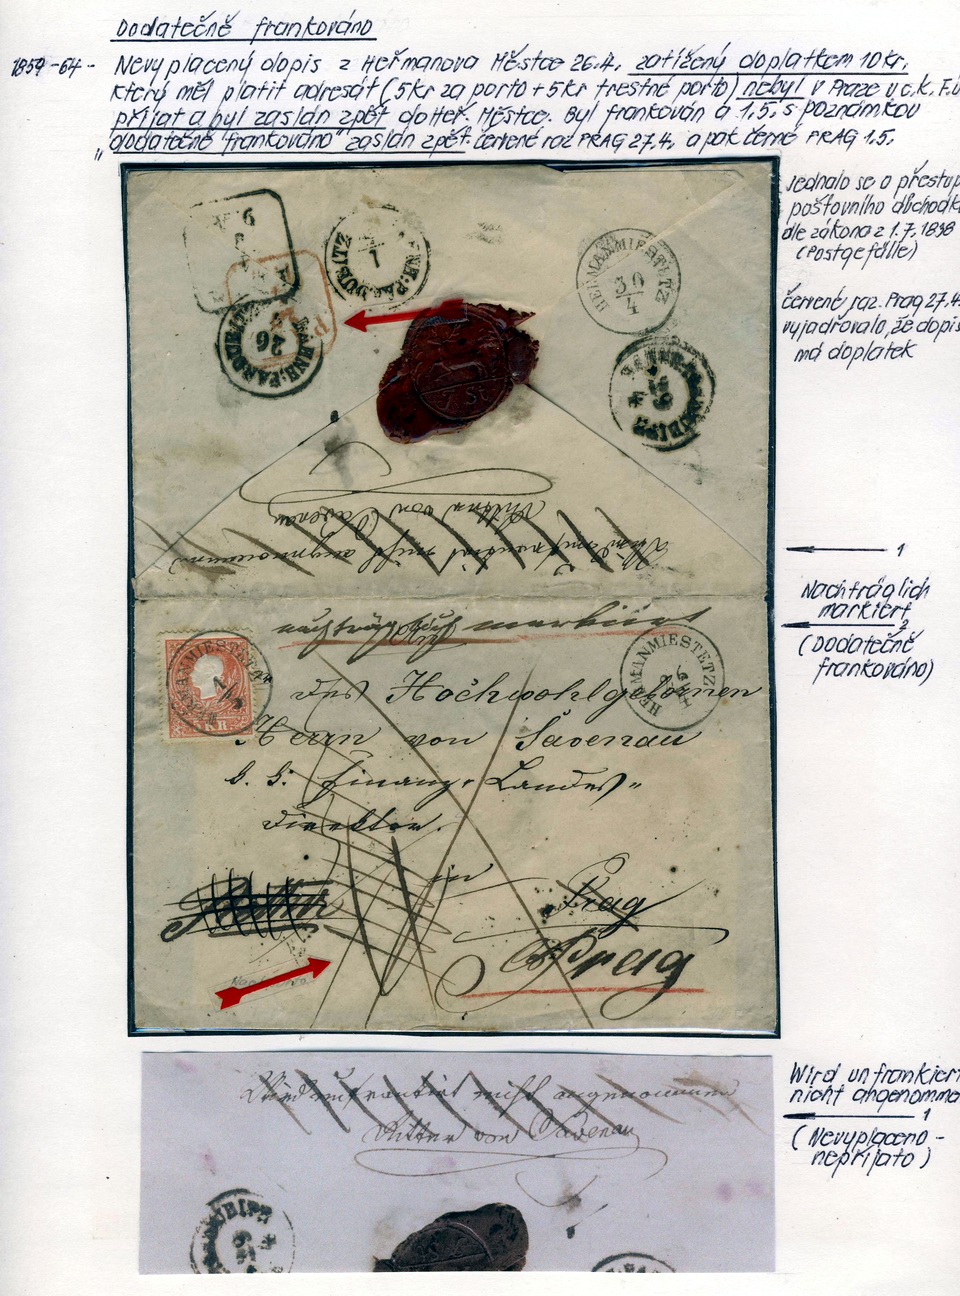 Dodatečně frankováno
1859-64- Nevyplacený dopis z Heřmanova Městce 26.4. zatížený doplatkem 10kr,
který měl platit adresát (5kr za porto + 5kr trestné porto) nebyl v Praze u c.k. F.Ú
přijat a byl zaslán zpět do Heř. Městce. Byl frankován a 1,5, s poznámkou
„dodatečně frankováno" zaslán zpět. Červené raz PRAG 27.4, a pak černé PRAG 1.5.
Jednalo se o přestup
poštovního důchodk
dle zákona z 1.7.1838
(Postgefälle)
červené raz. Prag 27.4.
vyjadřovalo, že dopis
má doplatek
HERMANMIESTETZ
30
4
26
Ritter von Savenau
Wird unfrankirt nicht angenommen
1
Nachträglich
markiert
2
(Dodatečně
frankováno)
nachträglich markirt
HERMANMIESTETZ
HERMANMIESTETZ
KR
Des Hochwohlgebornen
Herrn von Savenau
k. k. Finanz-Landes-
Direktor.
in
Prag
Prag
Wird unfrankirt nicht angenommen
Ritter von Savenau
Wird unfrankiert
nicht angenomme
1
(Nevyplaceno-
nepřijato)